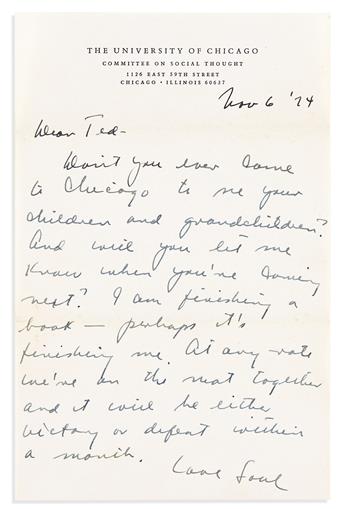 THE UNIVERSITY OF CHICAGO
COMMITTEE ON SOCIAL THOUGHT
1126 EAST 59TH STREET
CHICAGO • ILLINOIS 60637
Nov 6 '74
Dear Ted-
Won't you ever come
to Chicago to see your
children and grandchildren?
And will you let me
know when you're coming
next? I am finishing a
book — perhaps it's
finishing me. At any rate
we're on the mat together
and it will be either
victory or defeat within
a month.
Love Saul